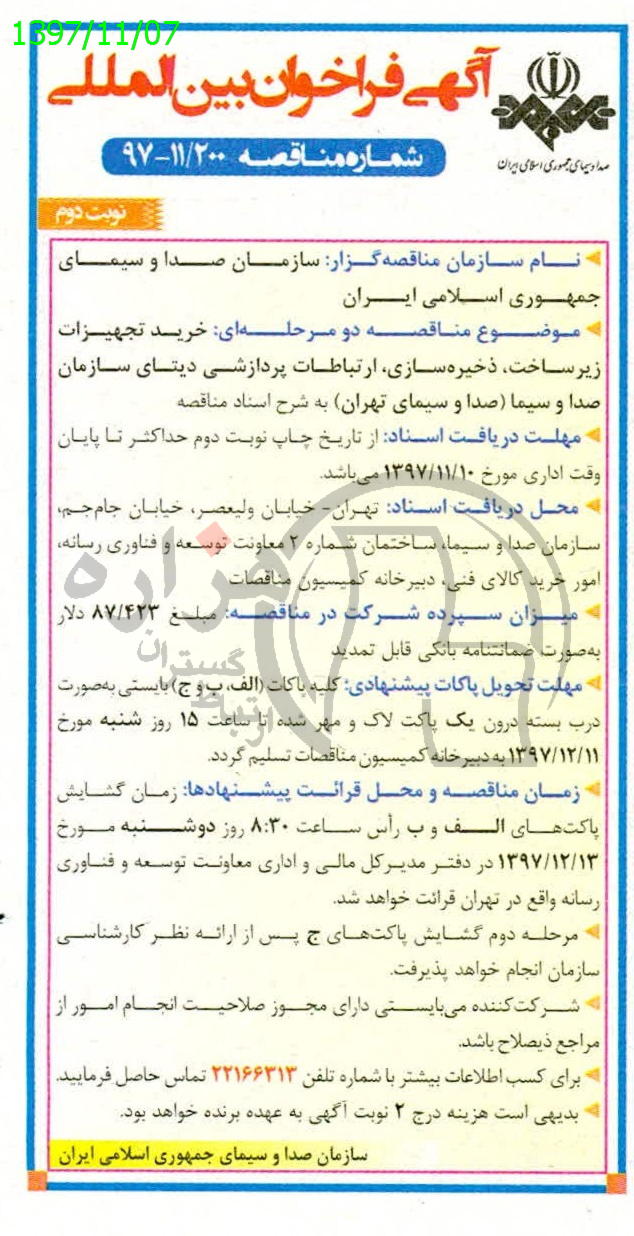 1397/11/07
آگهی فراخوان بین‌المللی
صدا و سیمای جمهوری اسلامی ایران
شماره مناقصه ۱۱/۲۰۰-۹۷
نوبت دوم
نـام سـازمان مناقصه‌گـزار: سازمـان صـدا و سیمـای
جمهـوری اسـلامی ایـران
موضـوع مناقصـه دو مرحلـه‌ای: خریـد تجهیـزات
زیرساخت، ذخیره‌سازی، ارتباطات پردازشـی دیتـای سـازمان
صدا و سیما (صدا و سیمای تهران) به شرح اسناد مناقصه
مهلـت دریافـت اسـناد: از تاریـخ چـاپ نوبـت دوم حداکثـر تـا پایـان
وقت اداری مورخ ۱۳۹۷/۱۱/۱۰ می‌باشد.
محـل دریافـت اسـناد: تهـران- خیابـان ولیعصـر، خیابـان جام‌جـم،
سـازمان صدا و سـیما، سـاختمان شـماره ۲ معاونت توسـعه و فناوری رسانه،
امور خرید کالای فنی، دبیرخانه کمیسیون مناقصات
میـزان سـپرده شـرکت در مناقصـه: مبلـغ ۸۷/۴۲۳ دلار
به‌صورت ضمانتنامه بانکی قابل تمدید
مهلت تحویل پاکات پیشنهادی: کلیه پاکات (الف، ب و ج) بایستی به‌صورت
درب بسته درون یک پاکت لاک و مهر شده تا ساعت ۱۵ روز شنبه مورخ
۱۳۹۷/۱۲/۱۱ به دبیرخانه کمیسیون مناقصات تسلیم گردد.
زمـان مناقصـه و محـل قرائـت پیشـنهادها: زمـان گشـایش
پاکت‌هـای الـف و ب رأس سـاعت ۸:۳۰ روز دوشـنبه مـورخ
۱۳۹۷/۱۲/۱۳ در دفتـر مدیـرکل مالـی و اداری معاونـت توسـعه و فنـاوری
رسانه واقع در تهران قرائت خواهد شد.
مرحلـه دوم گشـایش پاکت‌هـای ج پـس از ارائـه نظـر کارشناسـی
سازمان انجام خواهد پذیرفت.
شـرکت‌کننده می‌بایسـتی دارای مجـوز صلاحیـت انجـام امـور از
مراجع ذیصلاح باشد.
برای کسب اطلاعات بیشتر با شماره تلفن ۲۲۱۶۶۳۱۳ تماس حاصل فرمایید.
بدیهی است هزینه درج ۲ نوبت آگهی به عهده برنده خواهد بود.
سازمان صدا و سیمای جمهوری اسلامی ایران
هزاره
گستران
ارتباط